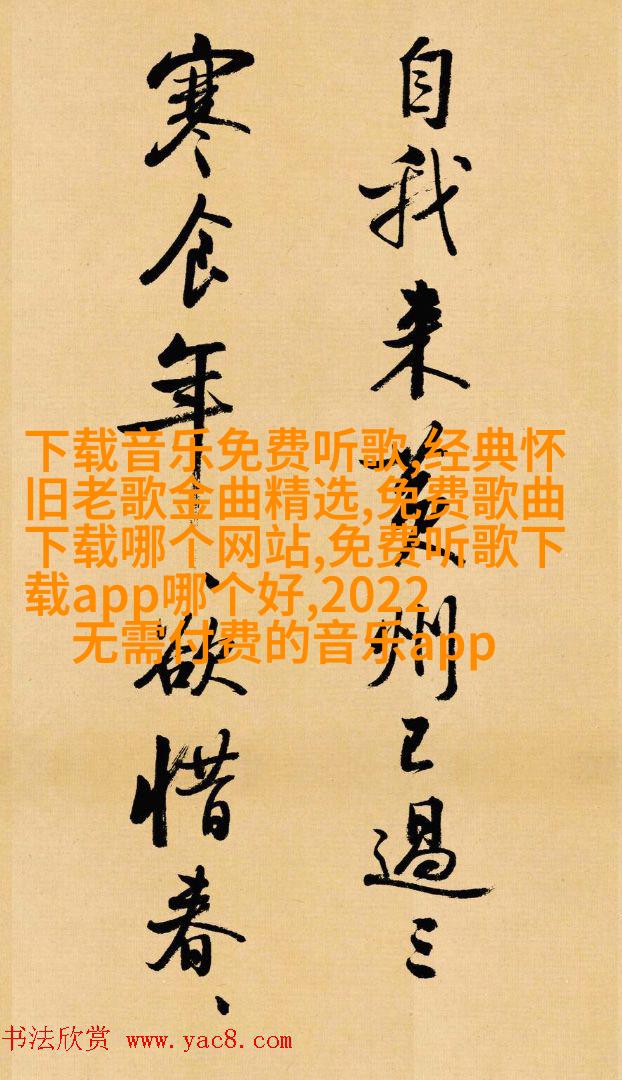 自我来黄州已過三
寒食年、欲惜春、
下载音乐免费听歌,经典怀
旧老歌金曲精选,免费歌曲
下载哪个网站,免费听歌下
载app哪个好,2022
无需付费的音乐app
书法欣赏 www.yac8.com